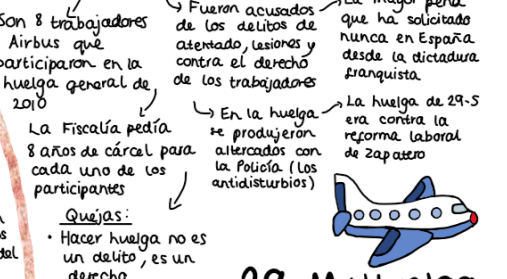 Son 8 trabajadores
Airbus que
participaron en la
huelga general de
2010
La Fiscalía pedía
8 años de cárcel para
cada uno de los
participantes
Quejas:
• Hacer huelga no es
un delito, es un
derecho
Fueron acusados
de los delitos de
atentado, lesiones y
contra el derecho
de los trabajadores
En la huelga
se produjeron
altercados con
la Policía (los
antidisturbios)
La mayor pena
que ha solicitado
nunca en España
desde la dictadura
franquista
La huelga de 29-S
era contra la
reforma laboral
de Zapatero